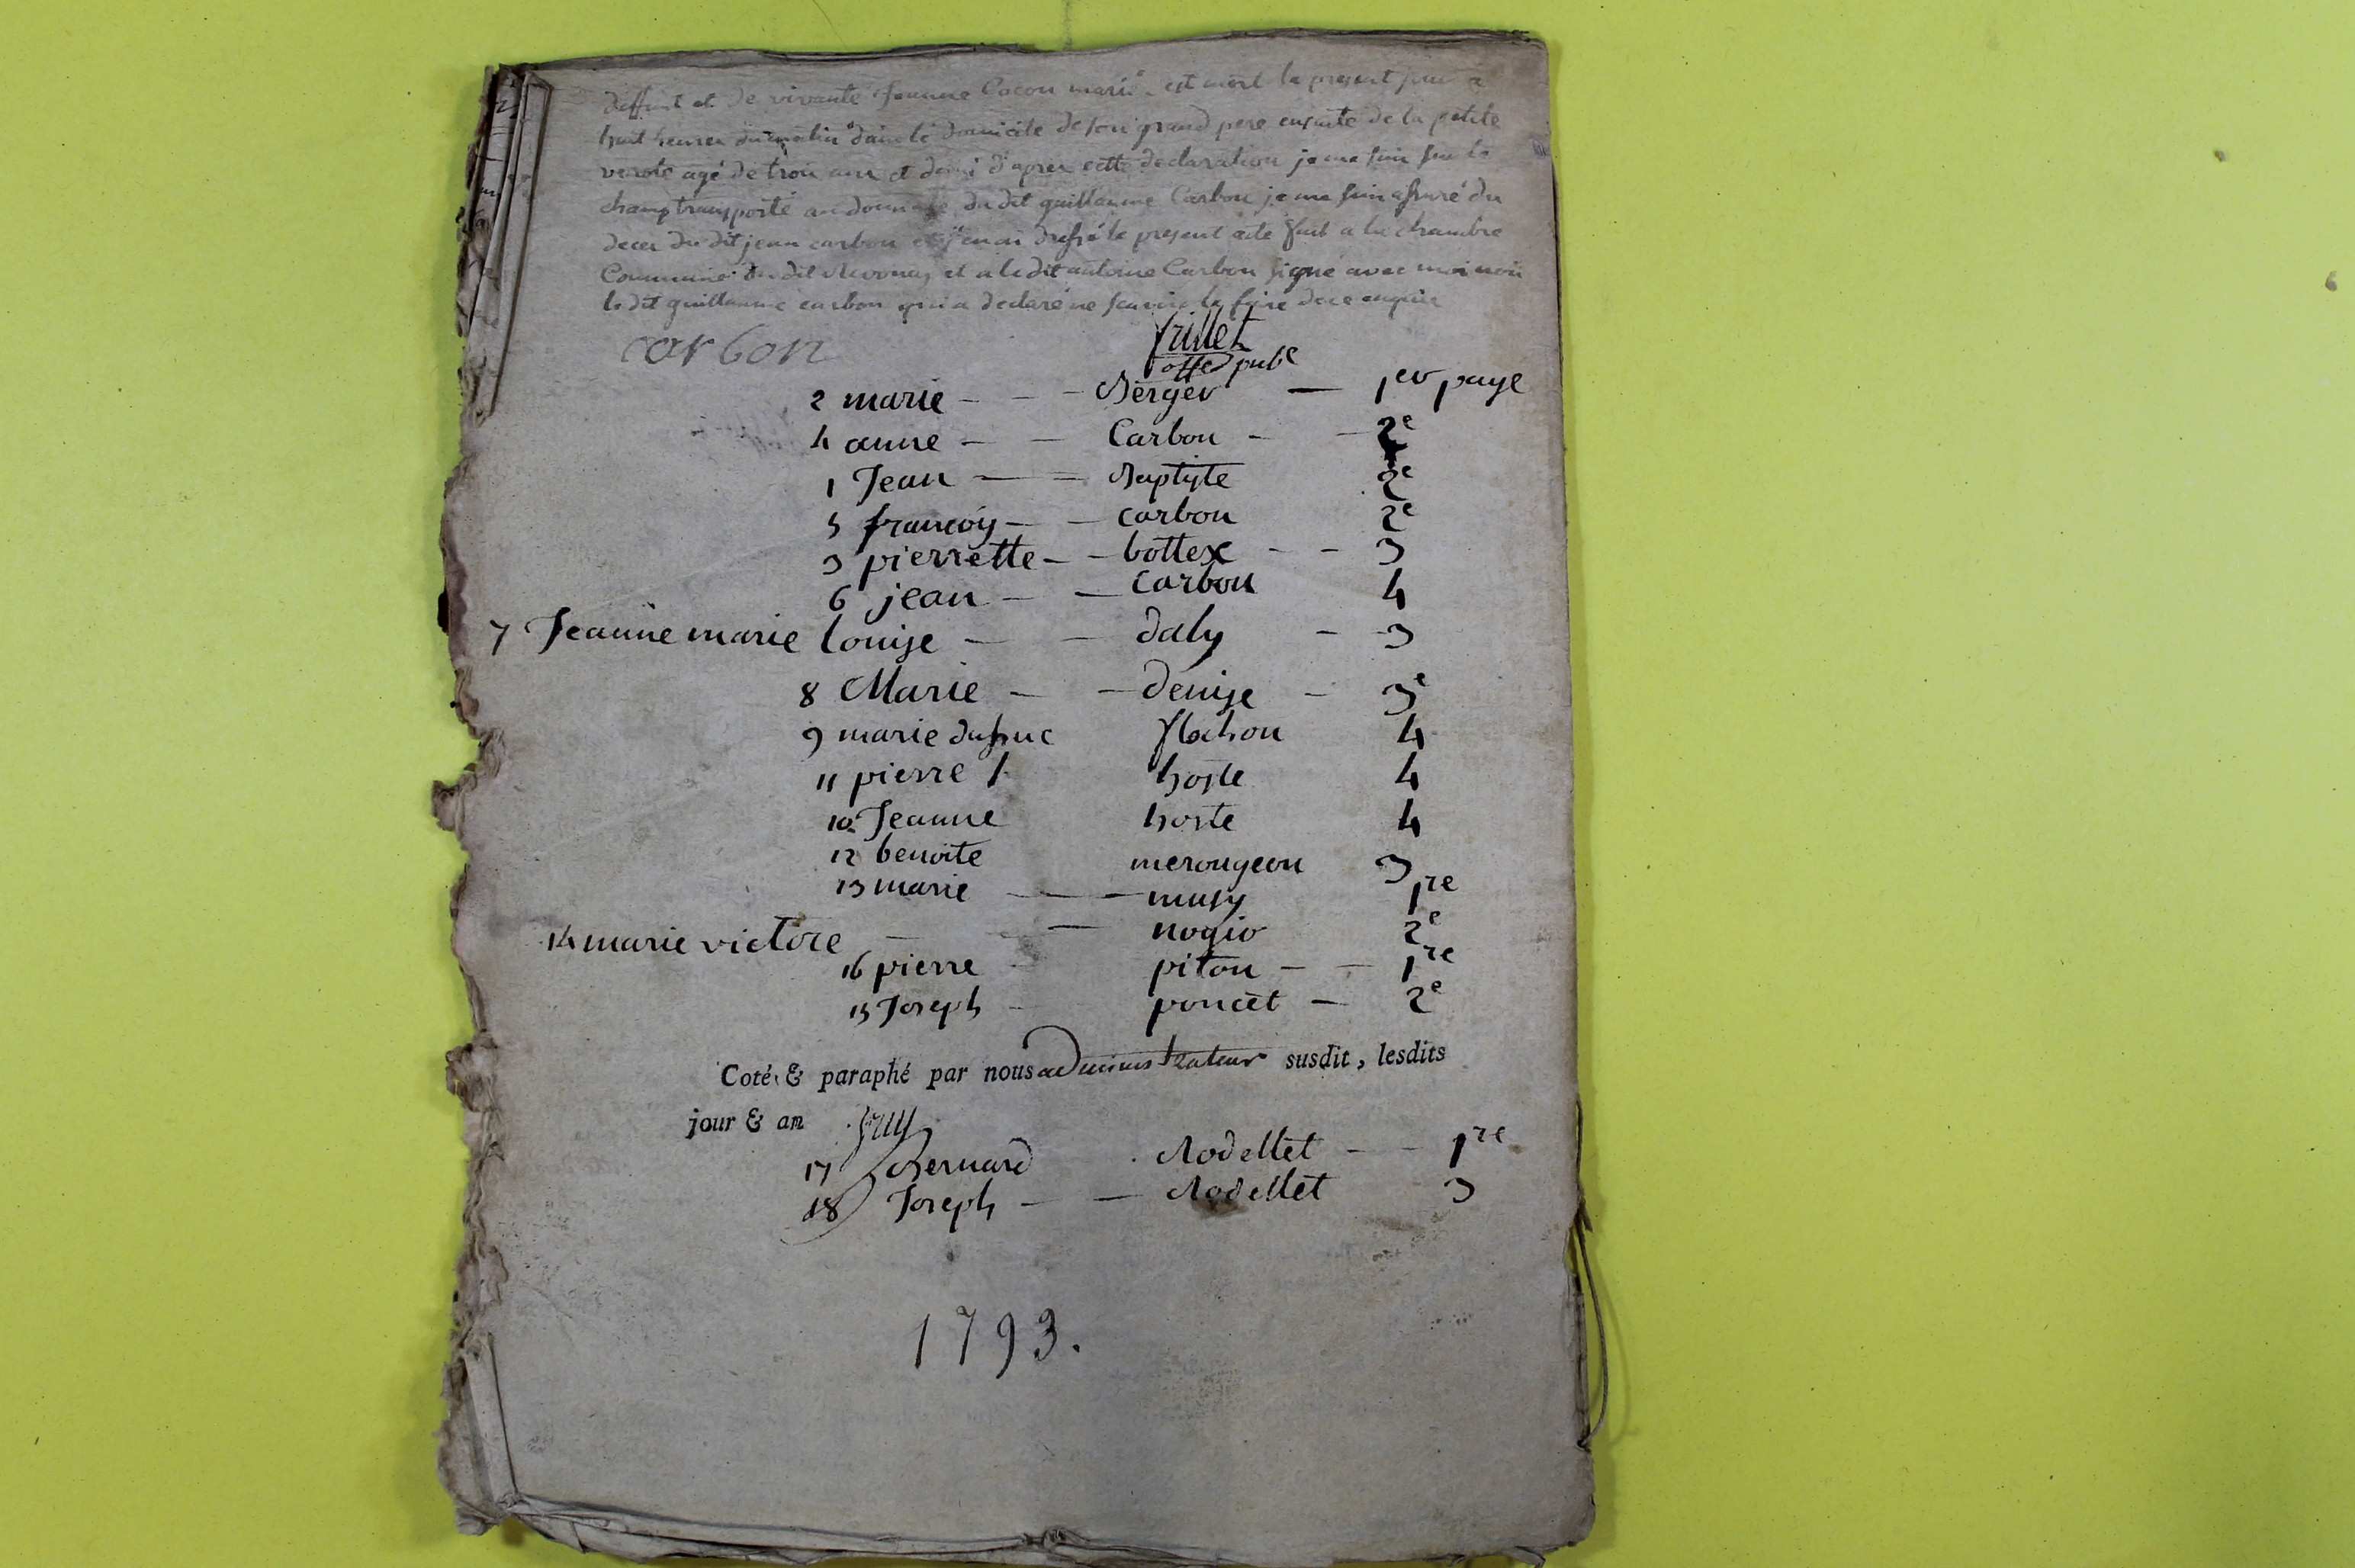 deffunt et de vivante jeanne Cocon marié est mort le present jour a
huit heures du matin dans le domicile de son grand pere ensuite de la petite
verole agé de trois ans et demi d'apres cette declaration je me suis sur le
champ transporté au domicile du dit guillaume Carbon je me suis assuré du
deces du dit jean carbon et j'en ai dressé le present acte fait a la chambre
Commune du dit et a le dit antoine Carbon signé avec moi non
le dit guillaume carbon qui a declaré ne scavoir le faire de ce enquis
carbon frillet
offe pube
2 marie - - - Berger — 1er page
4 anne — — Carbon - - 2e
1 Jean — = Baptiste 2e
5 francois — - carbon 2e
3 pierrette - - bottex - - 3
6 jean - — Carbon 4
7 Jeanne marie Louise — - daly - - 3
8 Marie — - denise - 3e
9 marie dufsuc flachon 4
11 pierre hoste 4
10 Jeanne hoste 4
12 benoite merougeon 3
13 marie — — musy 1re
14 marie victore — - — nogio 2e
16 pierre - piton - - 1re
15 Joseph - poncet — 2e
Coté & paraphé par nous administrateur susdit, lesdits
jour & an
17 Bernard Rodellet - - 1re
18 Joseph - — Rodellet 3
1793.